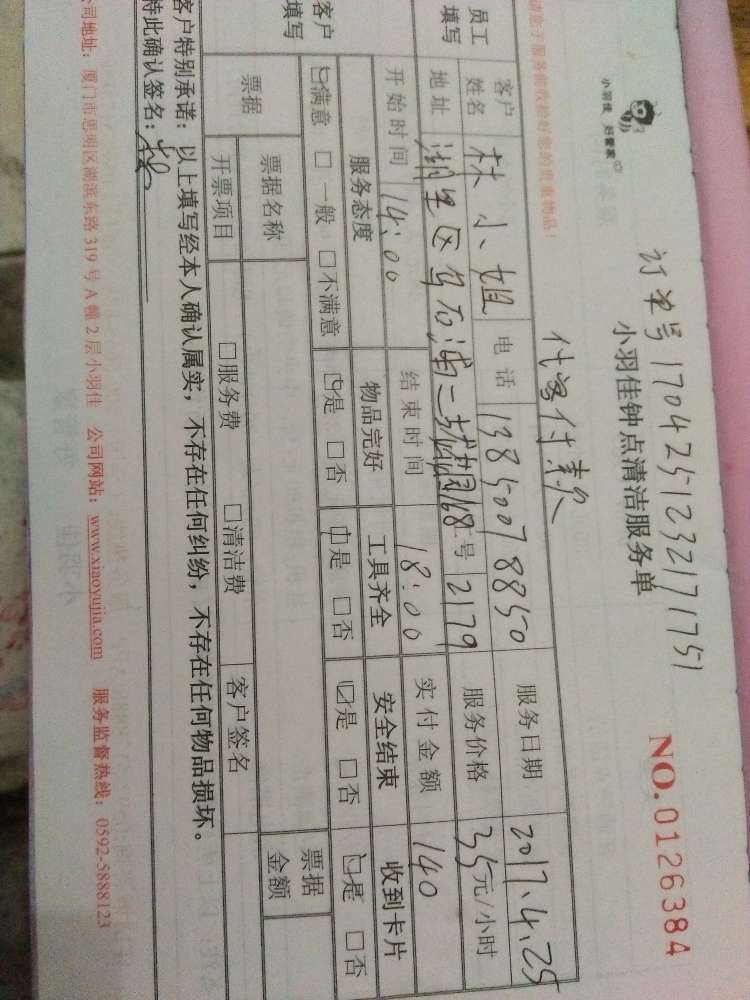 订单号 1704251232171751
小羽佳 好管家
小羽佳钟点清洁服务单
NO.0126384
代客付款
员工填写
客户姓名 林小姐 电话 13850078850 服务日期 2017.4.25
地址 湖里区乌石浦二 168号 2179 服务价格 35元/小时
开始时间 14:00 结束时间 18:00 实付金额 140
客户填写
服务态度 物品完好 工具齐全 安全结束 收到卡片
☑满意 □一般 □不满意 ☑是 □否 ☑是 □否 ☑是 □否 ☑是 □否
票据 票据名称 票据金额
开票项目 □服务费 □清洁费 客户签名
客户特别承诺：以上填写经本人确认属实，不存在任何纠纷，不存在任何物品损坏。
特此确认签名：
公司地址：厦门市思明区湖滨东路 319 号 A 幢 2 层小羽佳 公司网站：www.xiaoyujia.com 服务监督热线：0592-5888123